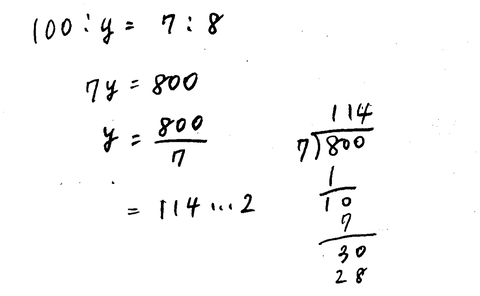 100 : y = 7 : 8
7y = 800
y = 800/7
= 114 ... 2
114
7)800
1
10
7
30
28